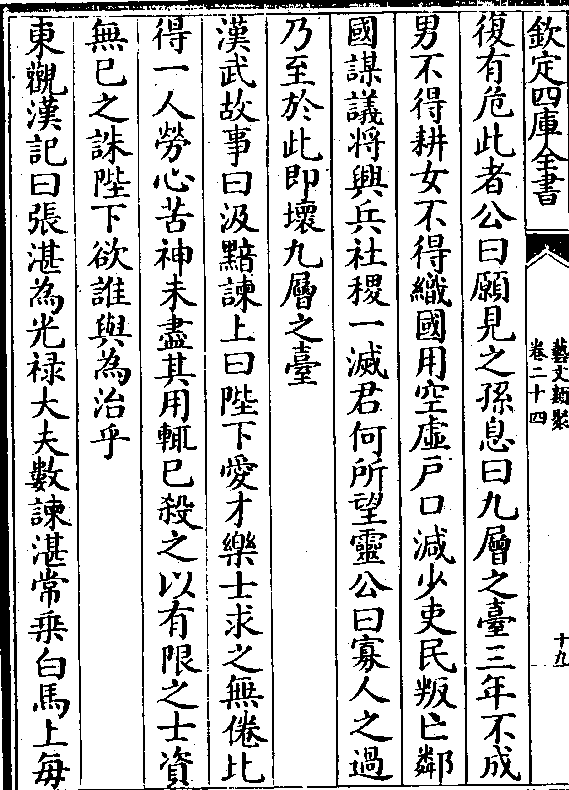 欽定四庫全書
藝文類聚
卷二十四
十九
復有危此者公曰願見之孫息曰九層之臺三年不成
男不得耕女不得織國用空虛戸口減少吏民叛亡鄰
國謀議將興兵社稷一滅君何所望靈公曰寡人之過
乃至於此即壞九層之臺
漢武故事曰汲黯諫上曰陛下愛才樂士求之無倦比
得一人勞心苦神未盡其用輒已殺之以有限之士資
無已之誅陛下欲誰與為治乎
東觀漢記曰張湛為光禄大夫數諫湛常乗白馬上毎